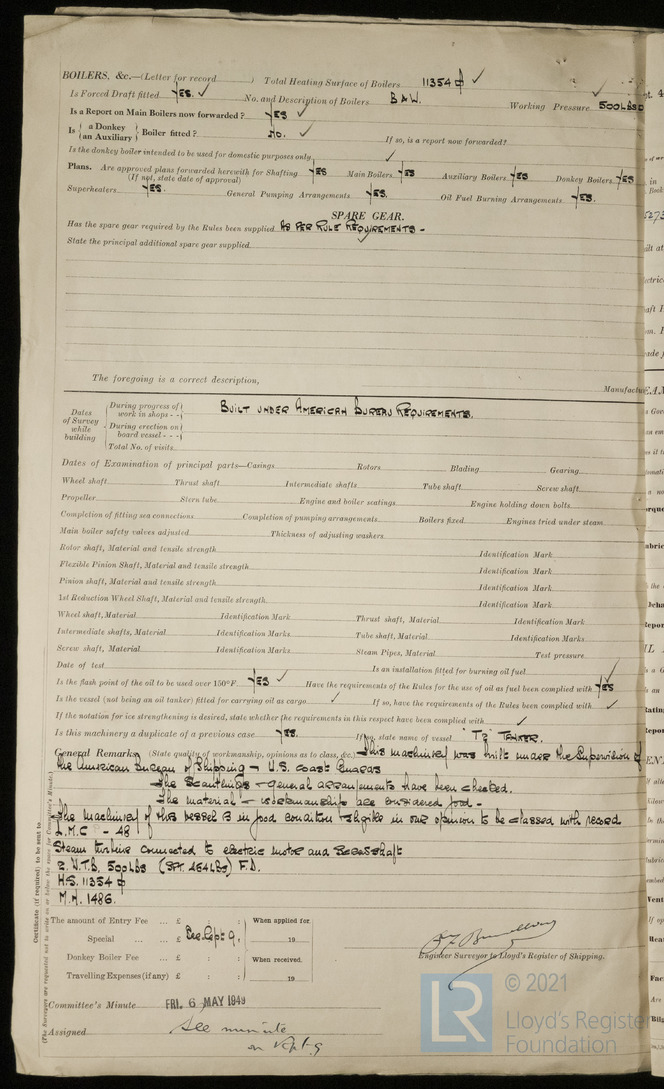 BOILERS, &c.—(Letter for record ) Total Heating Surface of Boilers 11354 ф ✓
Is Forced Draft fitted YES. ✓ No. and Description of Boilers B & W. Working Pressure 500 LBS
Is a Report on Main Boilers now forwarded? YES ✓
Is { a Donkey / an Auxiliary } Boiler fitted? No. ✓ If so, is a report now forwarded?
Is the donkey boiler intended to be used for domestic purposes only ✓
Plans. Are approved plans forwarded herewith for Shafting YES Main Boilers YES Auxiliary Boilers YES Donkey Boilers YES
(If not, state date of approval)
Superheaters YES. General Pumping Arrangements YES. Oil Fuel Burning Arrangements YES.
SPARE GEAR.
Has the spare gear required by the Rules been supplied AS PER RULE REQUIREMENTS -
State the principal additional spare gear supplied
The foregoing is a correct description,
Manufactu
Dates of Survey while building
During progress of work in shops - - BUILT UNDER AMERICAN BUREAU REQUIREMENTS.
During erection on board vessel - - -
Total No. of visits
Dates of Examination of principal parts—Casings Rotors Blading Gearing
Wheel shaft Thrust shaft Intermediate shafts Tube shaft Screw shaft
Propeller Stern tube Engine and boiler seatings Engine holding down bolts
Completion of fitting sea connections Completion of pumping arrangements Boilers fixed Engines tried under steam
Main boiler safety valves adjusted Thickness of adjusting washers
Rotor shaft, Material and tensile strength Identification Mark
Flexible Pinion Shaft, Material and tensile strength Identification Mark
Pinion shaft, Material and tensile strength Identification Mark
1st Reduction Wheel Shaft, Material and tensile strength Identification Mark
Wheel shaft, Material Identification Mark Thrust shaft, Material Identification Mark
Intermediate shafts, Material Identification Marks Tube shaft, Material Identification Marks
Screw shaft, Material Identification Marks Steam Pipes, Material Test pressure
Date of test Is an installation fitted for burning oil fuel ✓
Is the flash point of the oil to be used over 150°F. YES ✓ Have the requirements of the Rules for the use of oil as fuel been complied with YES
Is the vessel (not being an oil tanker) fitted for carrying oil as cargo ✓ If so, have the requirements of the Rules been complied with ✓
If the notation for ice strengthening is desired, state whether the requirements in this respect have been complied with ✓
Is this machinery a duplicate of a previous case YES. If so, state name of vessel T2 TANKER.
General Remarks (State quality of workmanship, opinions as to class, &c.) This machinery was built under the Supervision of
the American Bureau of Shipping - U.S. Coast Guards
The Scantlings - general arrangements have been checked.
The material - workmanship are considered good -
The machinery of this vessel is in good condition eligible in our opinion to be classed with record
L.M.C - 48
Steam turbine connected to electric motor and Screwshaft
2. W.T.B. 500 LBS (SPT. 454 LBS) F.D.
H.S. 11354 ф
M.N. 1486.
The amount of Entry Fee ... £ : : When applied for.
Special ... ... £ See Rept 9. 19
Donkey Boiler Fee ... £ : : When received.
Travelling Expenses (if any) £ : : 19
Engineer Surveyor to Lloyd's Register of Shipping.
Committee's Minute FRI. 6 MAY 1949
Assigned See minute
on Rpt 9
Certificate (if required) to be sent to
(The Surveyors are requested not to write on or below the space for Committee's Minute.)
LR © 2021
Lloyd's Register
Foundation